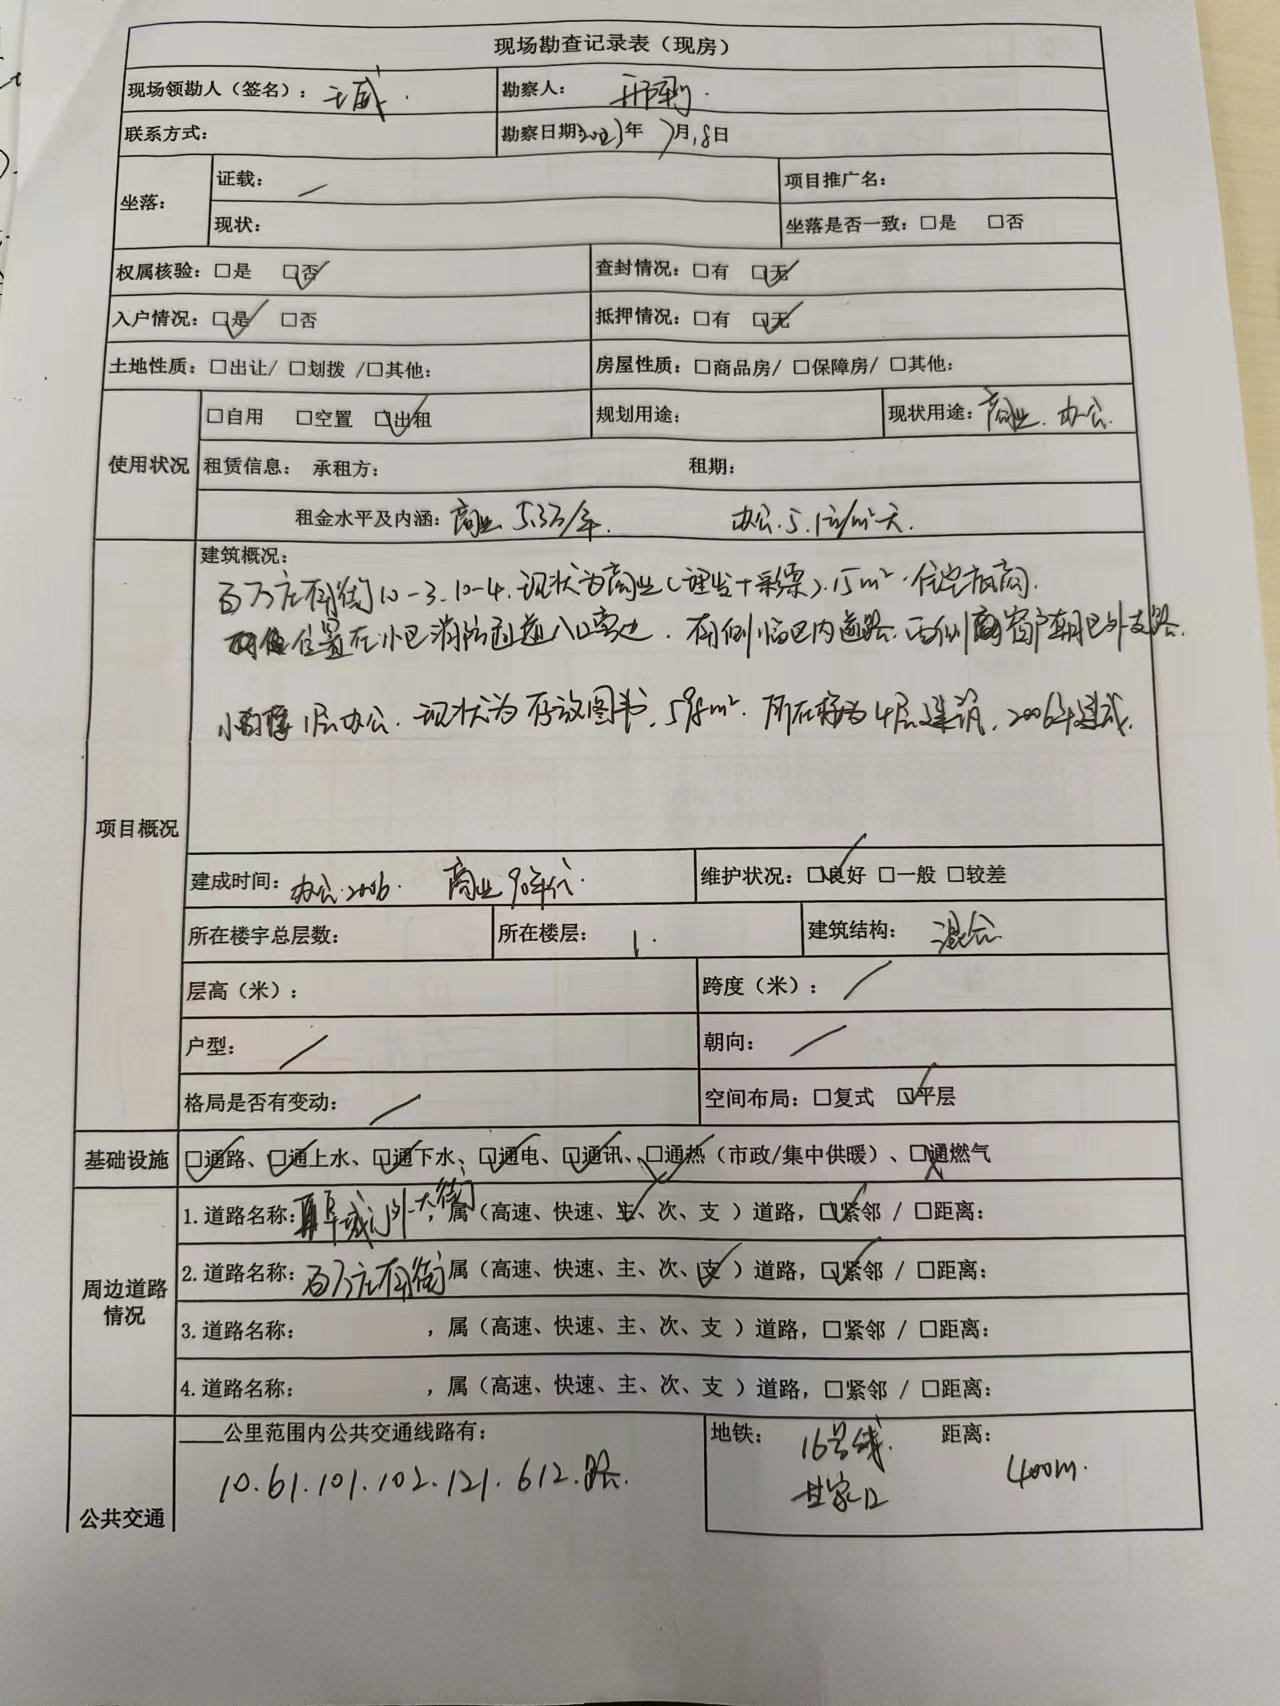 现场勘查记录表（现房）
现场领勘人（签名）：王威. 勘察人：
联系方式： 勘察日期2023年7月18日
坐落： 证载：／ 项目推广名：
现状： 坐落是否一致：□是 □否
权属核验：□是 ☑否 查封情况：□有 ☑无
入户情况：☑是 □否 抵押情况：□有 ☑无
土地性质：□出让/ □划拨 /□其他： 房屋性质：□商品房/ □保障房/ □其他：
使用状况 □自用 □空置 ☑出租 规划用途： 现状用途：商业. 办公.
租赁信息： 承租方： 租期：
租金水平及内涵：商业 5.3万/年. 办公.5.1元/m²天.
项目概况 建筑概况：
百万庄南街10-3.10-4.现状为商业（理发+彩票）.15m².住宅底商.
位置在小区消防通道入口旁边. 南侧临区内道路.西侧窗户朝区外支路.
1层办公. 现状为存放图书.598m². 所在楼为4层建筑. 2006年建成.
建成时间：办公.2006. 商业 90年代 维护状况：☑良好 □一般 □较差
所在楼宇总层数： 所在楼层：1. 建筑结构：混合
层高（米）： 跨度（米）：／
户型：／ 朝向：／
格局是否有变动：／ 空间布局：□复式 ☑平层
基础设施 ☑通路、☑通上水、☑通下水、☑通电、☑通讯、☑通热（市政/集中供暖）、☒通燃气
周边道路情况 1.道路名称：阜成门外大街，属（高速、快速、主✓、次、支 ）道路，☑紧邻 / □距离：
2.道路名称：百万庄南街 属（高速、快速、主、次、支✓ ）道路，☑紧邻 / □距离：
3.道路名称： ，属（高速、快速、主、次、支 ）道路，□紧邻 / □距离：
4.道路名称： ，属（高速、快速、主、次、支 ）道路，□紧邻 / □距离：
公共交通 ___公里范围内公共交通线路有： 地铁：16号线. 距离：
10.61.101.102.121.612.路. 甘家口 400m.